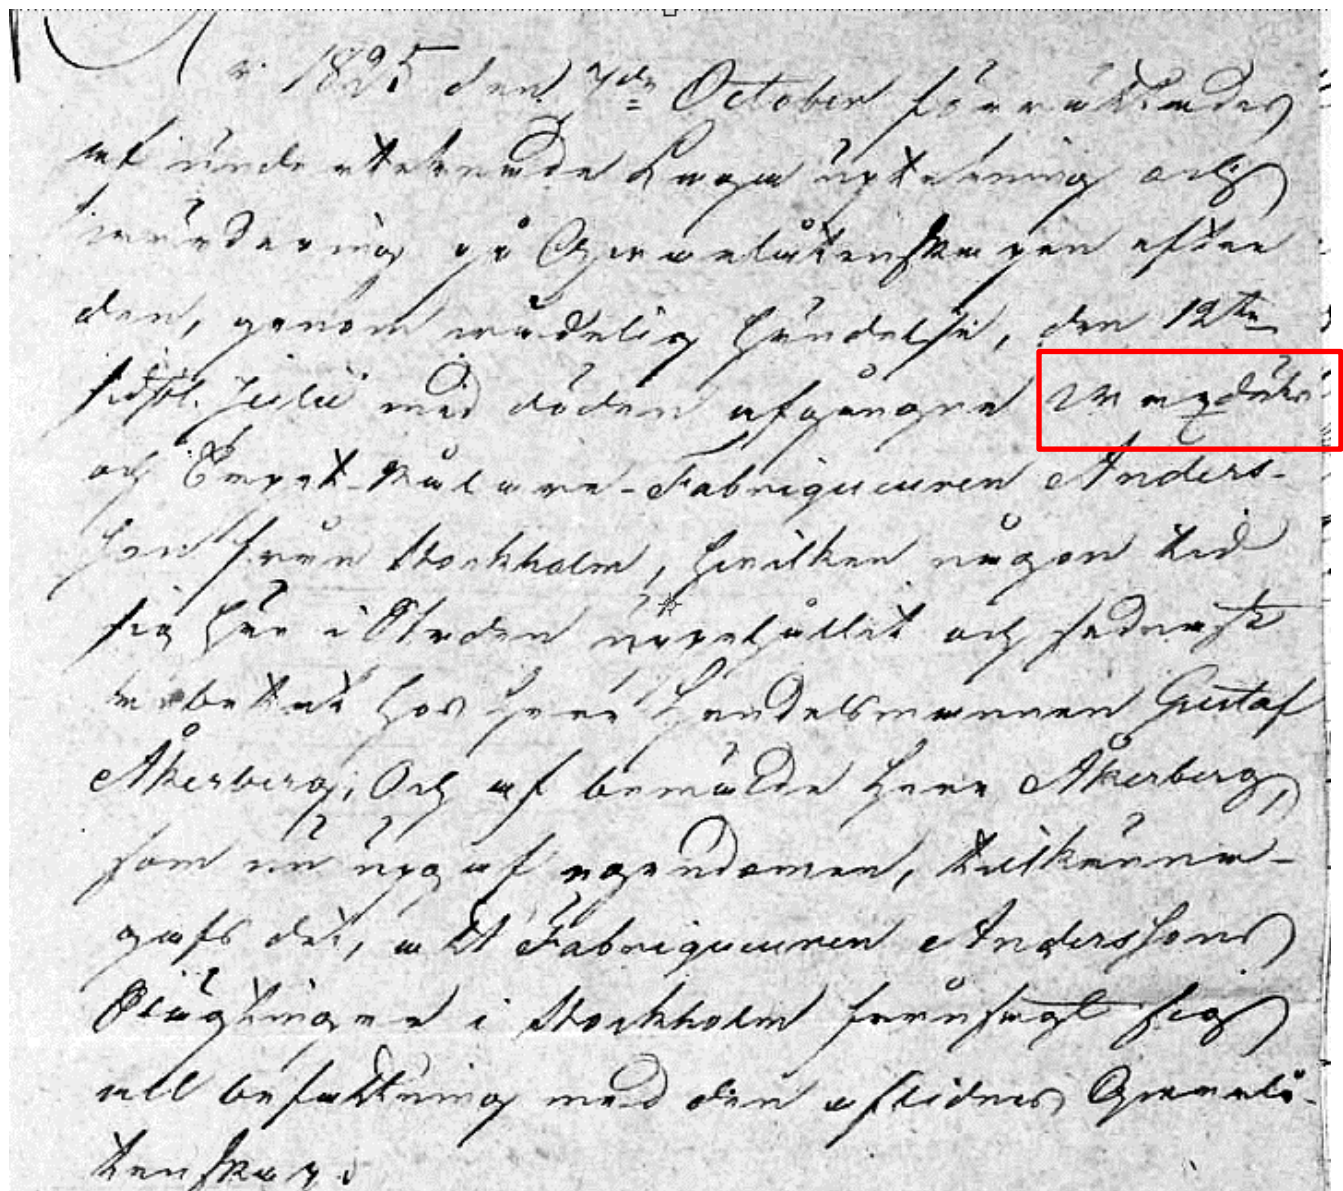 År 1825 den 7de October förrättades
af undertecknade Laga upteckning och
värdering på Qvarlåtenskapen efter
den, genom vådelig händelse, den 12te
sidstl. Julii med döden afgångne Vaxduks
och Tapet-Målare-Fabriqueuren Anders-
son från Stockholm, hvilken någon tid
sig här i Staden uppehållit och sednast
arbetat hos Herr Handelsmannen Gustaf
Åkerberg; Och af bemälde Herr Åkerberg,
som nu upgaf egendomen, tillkänna-
gafs det, att Fabriqueuren Anderssons
Slägtingar i Stockholm frånsagt sig
all befattning med den aflidnes Qvarlå-
tenskap.